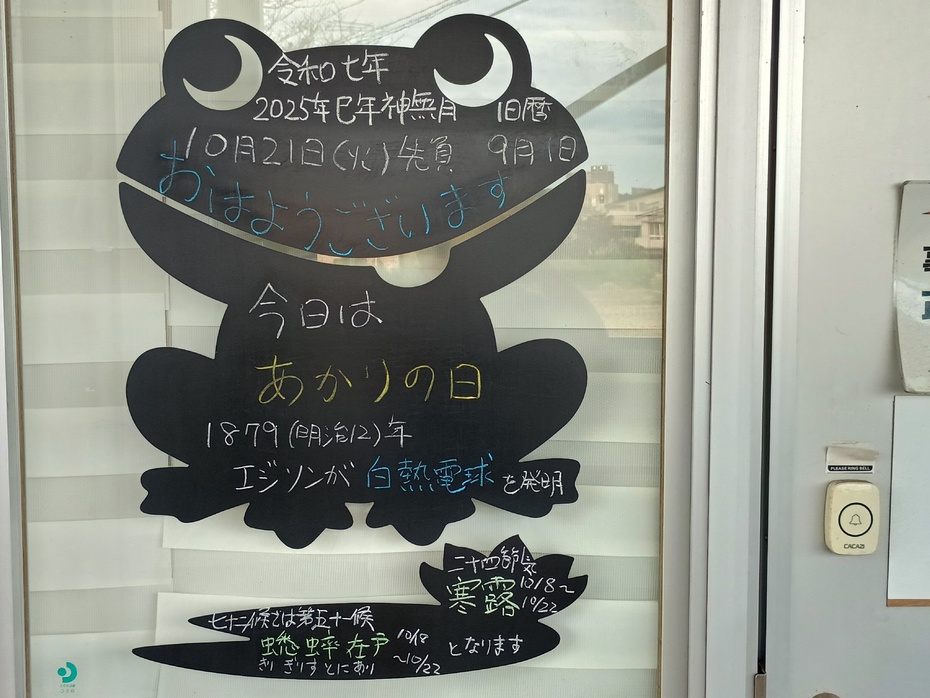 令和七年
2025年巳年神無月 旧暦
10月21日(火)先負 9月1日
おはようございます
今日は
あかりの日
1879(明治12)年
エジソンが白熱電球を発明
二十四節気
寒露 10/8〜10/22
七十二候では第五十一候
蟋蟀在戸 10/18〜10/22 となります
きりぎりすとにあり
PLEASE RING BELL
CACAZI